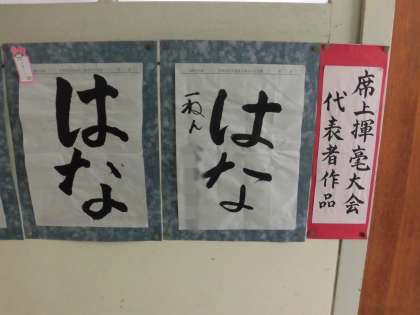 席上揮毫大会
代表者作品
はな
一ねん
はな